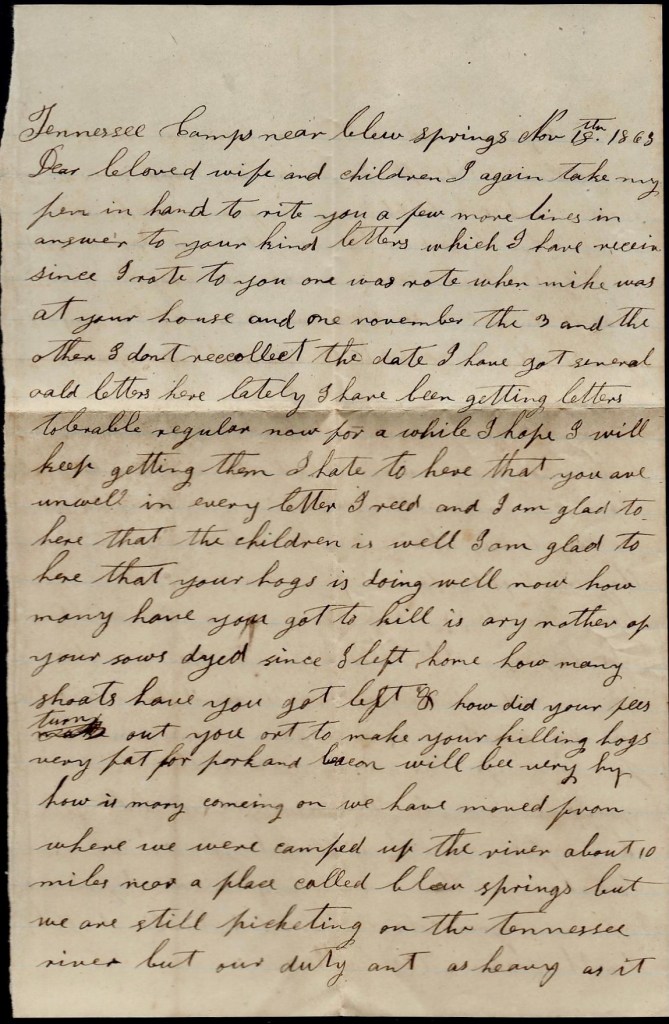 Tennessee Camps near blew springs Nov 18th. 1863
Dear beloved wife and children I again take my
pen in hand to rite you a few more lines in
answer to your kind letters which I have receiv
since I rote to you one was rote when mike was
at your house and one november the 3 and the
other I dont reccollect the date I have got several
oald letters here lately I have been getting letters
tolerable regular now for a while I hope I will
keep getting them I hate to here that you are
unwell in every letter I reed and I am glad to
here that the children is well I am glad to
here that your hogs is doing well now how
many have you got to kill is ary nother of
your sows dyed since I left home how many
shoats have you got left & how did your pees
turn
out you ort to make your killing hogs
very fat for pork and bacon will bee very hy
how is mary comeing on we have moved from
where we were camped up the river about 10
miles near a place called blew springs but
we are still picketing on the tennessee
river but our duty ant as heavy as it